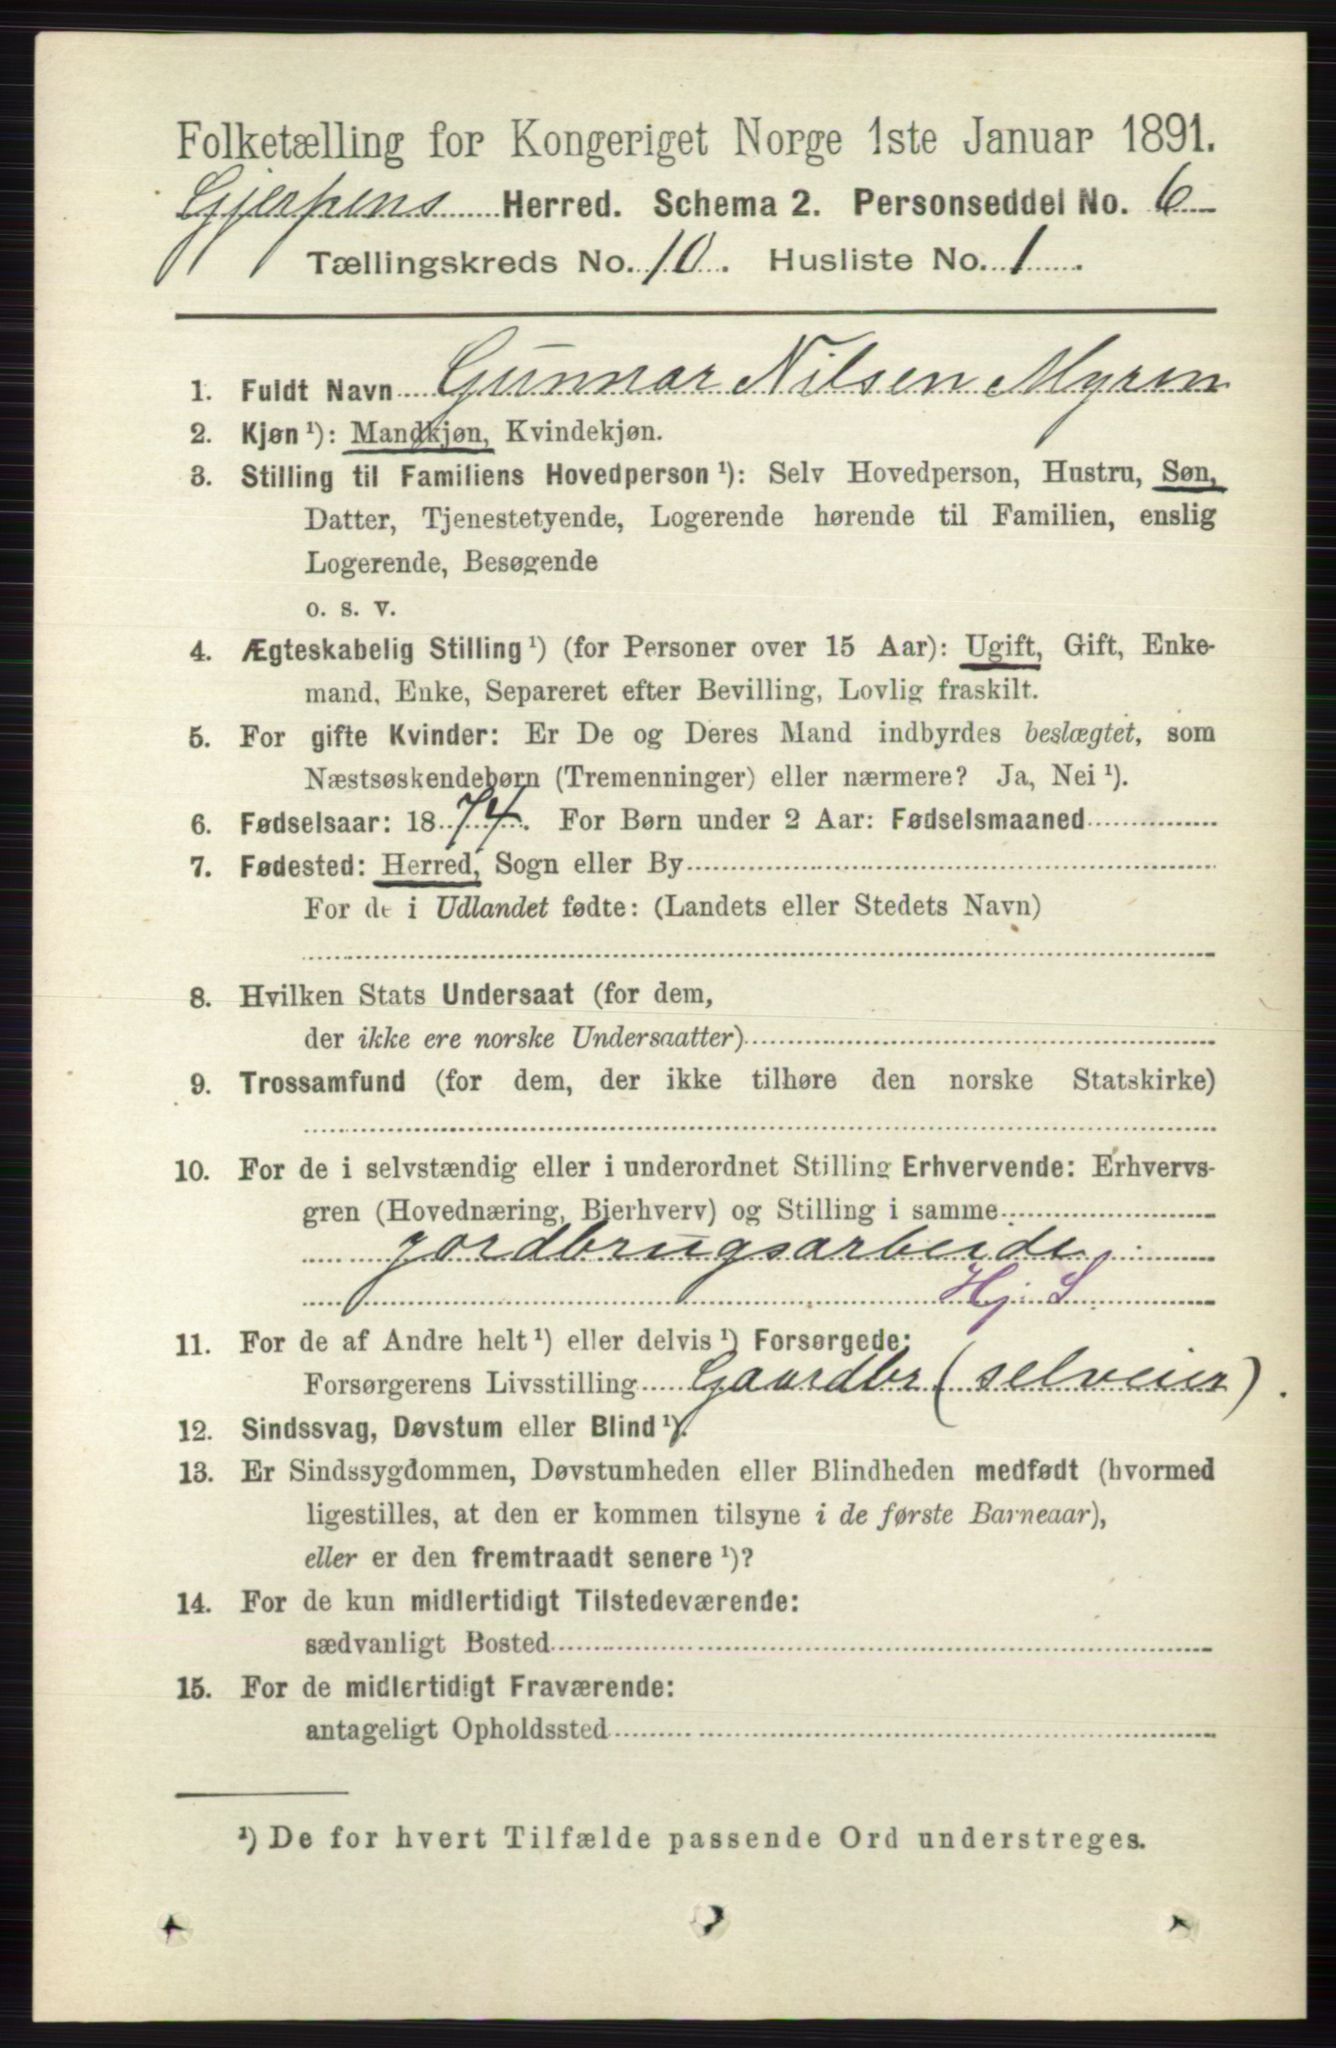 Folketælling for Kongeriget Norge 1ste Januar 1891.
Gjerpens Herred. Schema 2. Personseddel No. 6
Tællingskreds No. 10. Husliste No. 1
1. Fuldt Navn Gunnar Nilsen Myren
2. Kjøn ¹): Mandkjøn, Kvindekjøn.
3. Stilling til Familiens Hovedperson ¹): Selv Hovedperson, Hustru, Søn,
Datter, Tjenestetyende, Logerende hørende til Familien, enslig
Logerende, Besøgende
o. s. v.
4. Ægteskabelig Stilling ¹) (for Personer over 15 Aar): Ugift, Gift, Enke-
mand, Enke, Separeret efter Bevilling, Lovlig fraskilt.
5. For gifte Kvinder: Er De og Deres Mand indbyrdes beslægtet, som
Næstsøskendebørn (Tremenninger) eller nærmere? Ja, Nei ¹).
6. Fødselsaar: 1874. For Børn under 2 Aar: Fødselsmaaned
7. Fødested: Herred, Sogn eller By
For de i Udlandet fødte: (Landets eller Stedets Navn)
8. Hvilken Stats Undersaat (for dem,
der ikke ere norske Undersaatter)
9. Trossamfund (for dem, der ikke tilhøre den norske Statskirke)
10. For de i selvstændig eller i underordnet Stilling Erhvervende: Erhvervs-
gren (Hovednæring, Bierhverv) og Stilling i samme
jordbrugsarbeide
Hj. S
11. For de af Andre helt ¹) eller delvis ¹) Forsørgede:
Forsørgerens Livsstilling Gaardbr (selveier).
12. Sindssvag, Døvstum eller Blind ¹).
13. Er Sindssygdommen, Døvstumheden eller Blindheden medfødt (hvormed
ligestilles, at den er kommen tilsyne i de første Barneaar),
eller er den fremtraadt senere ¹)?
14. For de kun midlertidigt Tilstedeværende:
sædvanligt Bosted
15. For de midlertidigt Fraværende:
antageligt Opholdssted
¹) De for hvert Tilfælde passende Ord understreges.